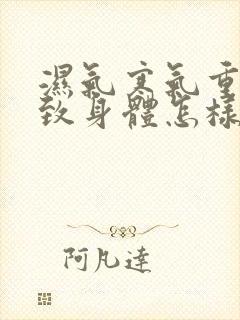 濕氣寒氣重
致身體怎樣
阿凡達